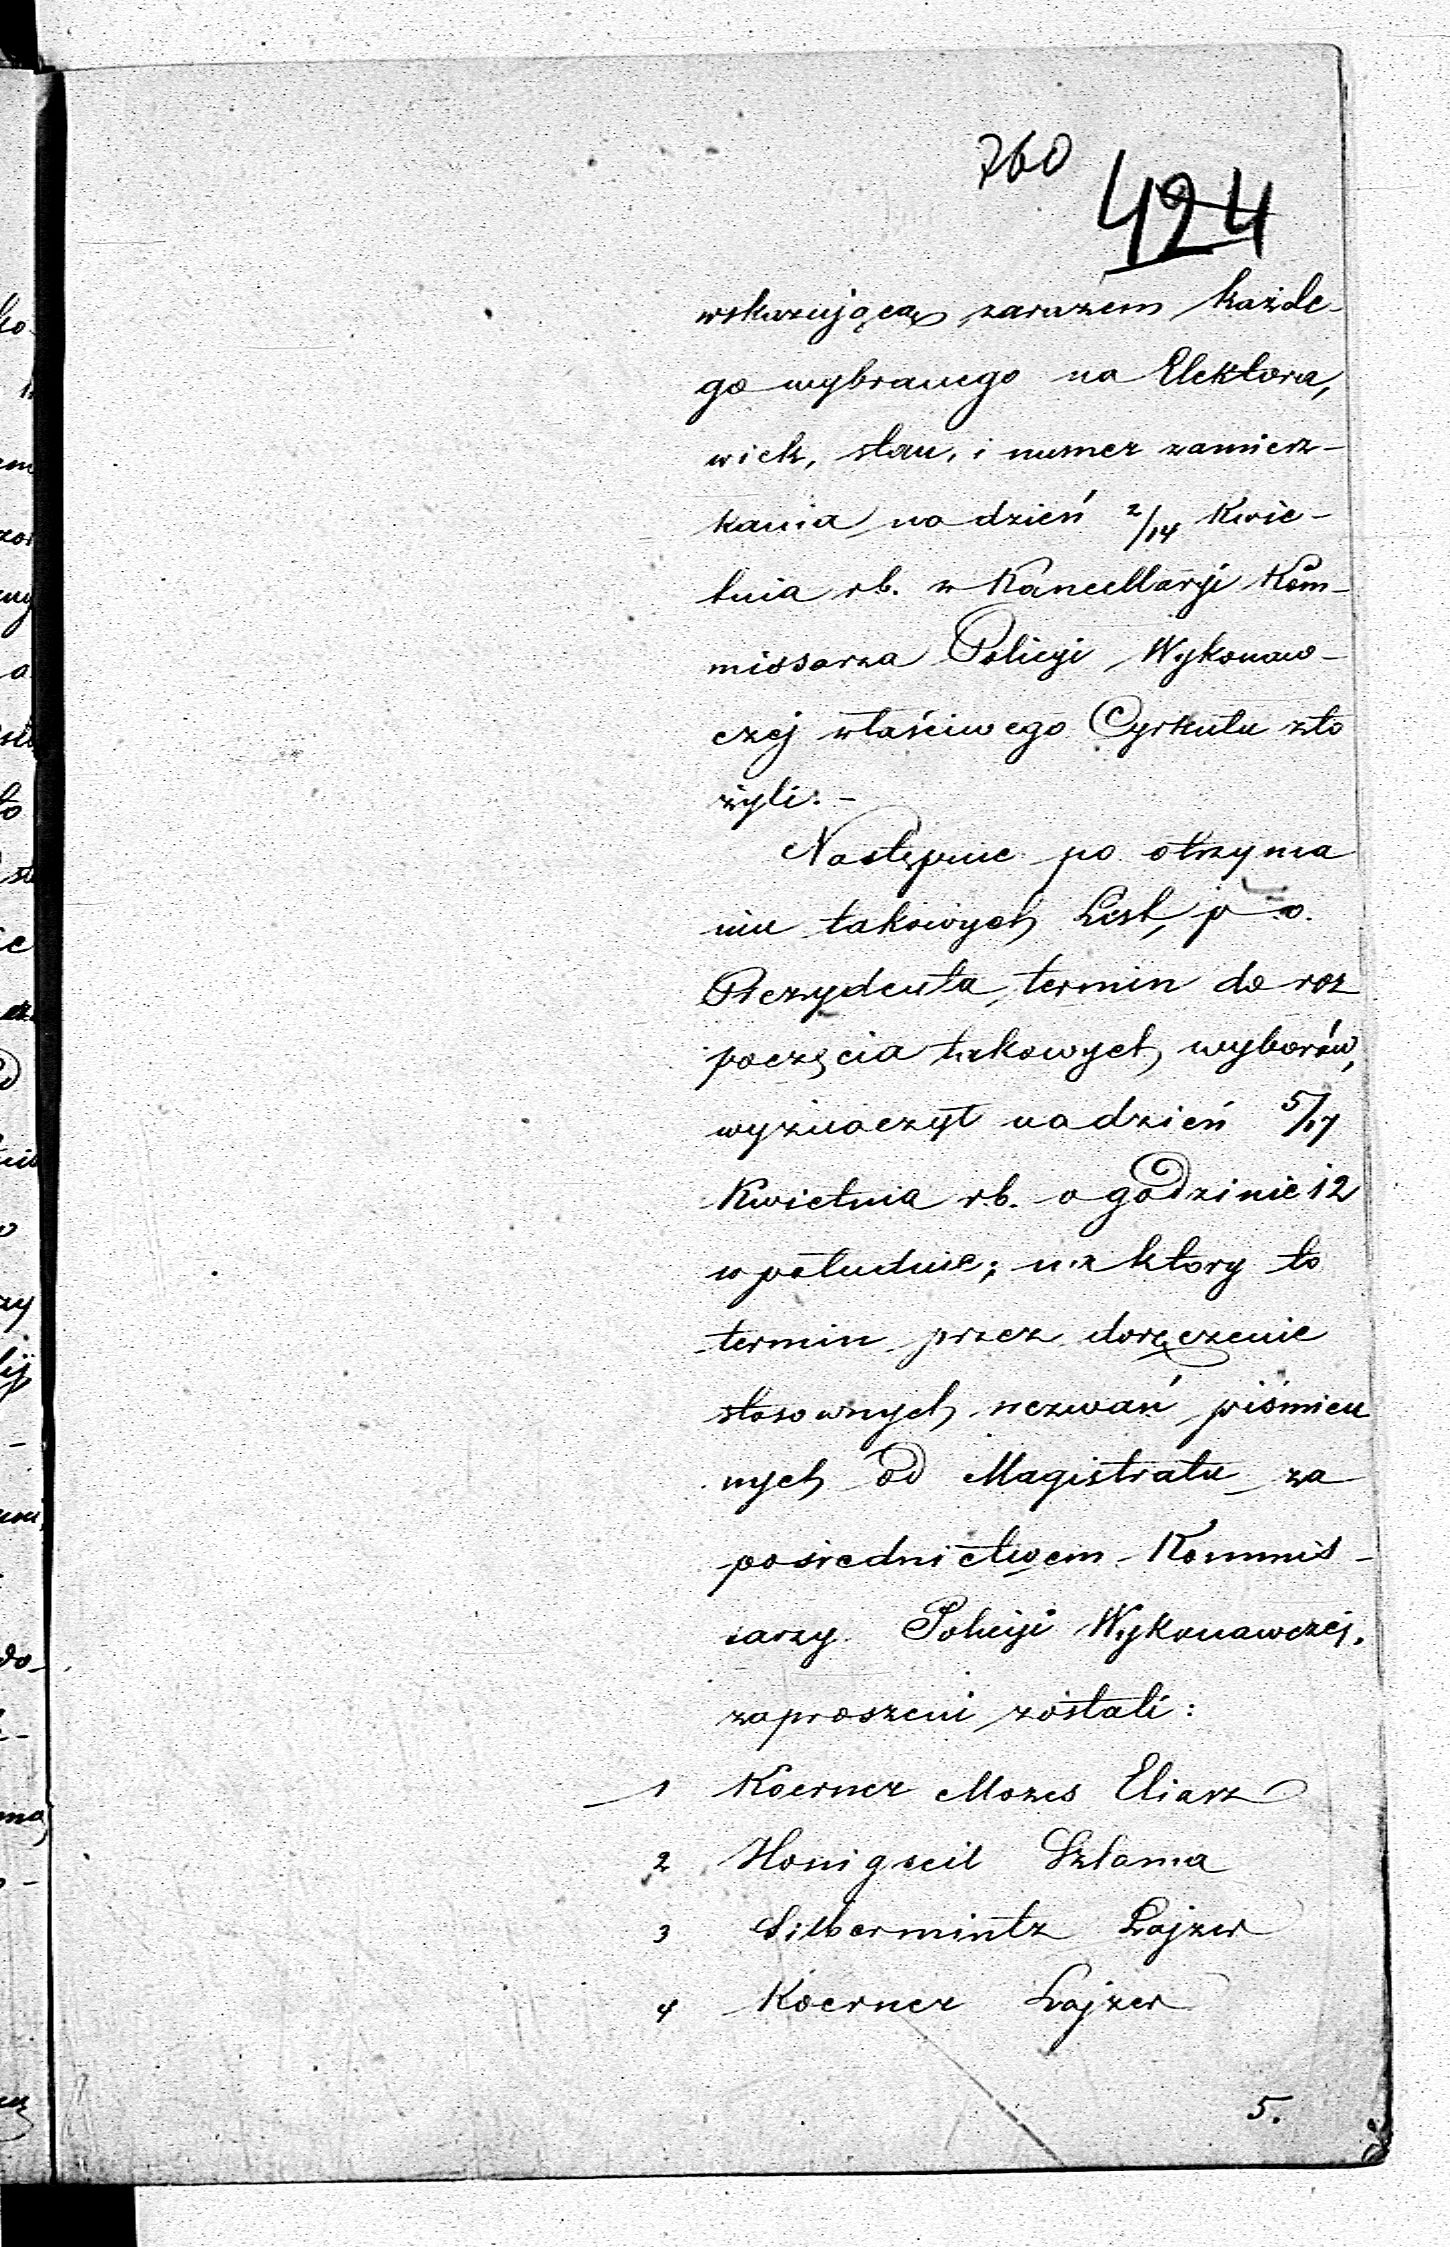 760
424
wskazującą zarazem każde-
go wybranego na Elektora,
wiek, stan, i numer zamiesz-
kania na dzień 2/14 Kwie-
tnia rb. w Kancellaryi Kom-
missarza Policyi Wykonaw-
czej właściwego Cyrkułu zło
żyli. -
Następnie po otrzyma
niu takowych List, p.o.
Prezydenta, termin do roz
poczęcia takowych wyborów,
wyznaczył na dzień 5/17
Kwietnia r.b. o godzinie 12
w południe; na który to
termin przez doręczenie
stosownych wezwań piśmien
nych od Magistratu za
pośrednictwem Kommis-
sarzy Policyi Wykonawczej,
zaproszeni zostali:
1 Koerner Mozes Eliasz
2 Honigseil Szlama
3 Silbermintz Lajzer
4 Koerner Lajzer
5.